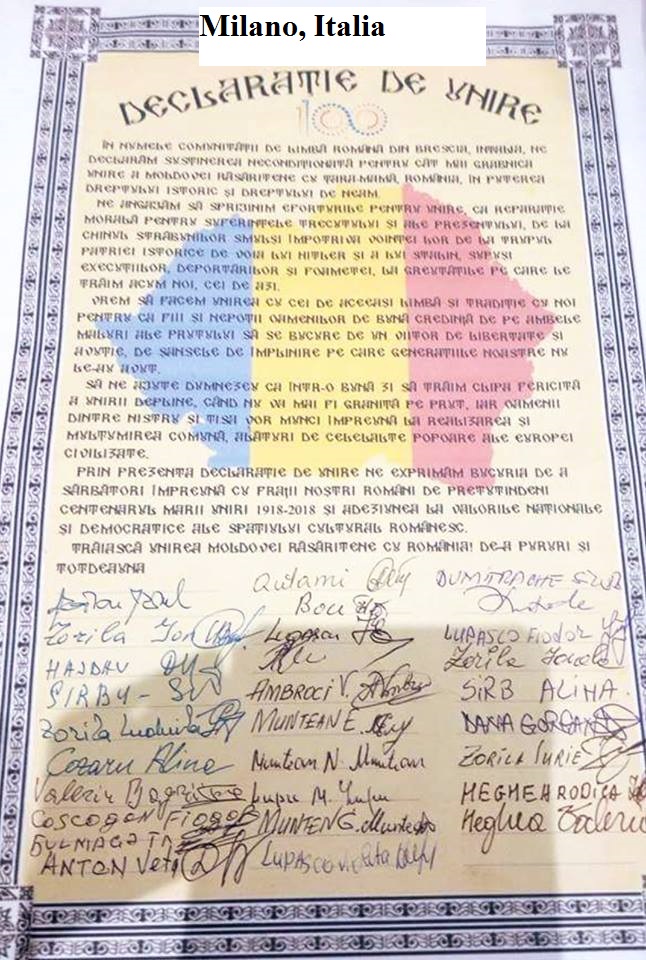 Milano, Italia
DECLARAȚIE DE UNIRE
100
ÎN NUMELE COMUNITĂȚII DE LIMBĂ ROMÂNĂ DIN BRESCIA, INTALIA, NE
DECLARĂM SUSȚINEREA NECONDIȚIONATĂ PENTRU CÂT MAI GRABNICA
UNIRE A MOLDOVEI RĂSĂRITENE CU ȚARA-MAMĂ, ROMÂNIA, ÎN PUTEREA
DREPTULUI ISTORIC ȘI DREPTULUI DE NEAM.
NE ANGAJĂM SĂ SPRIJINIM EFORTURILE PENTRU UNIRE, CA REPARAȚIE
MORALĂ PENTRU SUFERINȚELE TRECUTULUI ȘI ALE PREZENTULUI, DE LA
CHINUL STRĂBUNILOR SMULȘI ÎMPOTRIVA VOINȚEI LOR DE LA TRUPUL
PATRIEI ISTORICE DE VOIA LUI HITLER ȘI A LUI STALIN, SUPUȘI
EXECUȚIILOR, DEPORTĂRILOR ȘI FOAMETEI, LA GREUTĂȚILE PE CARE LE
TRĂIM ACUM NOI, CEI DE AZI.
VREM SĂ FACEM UNIREA CU CEI DE ACEEAȘI LIMBĂ ȘI TRADIȚIE CU NOI
PENTRU CA FIII ȘI NEPOȚII OAMENILOR DE BUNĂ CREDINȚĂ DE PE AMBELE
MALURI ALE PRUTULUI SĂ SE BUCURE DE UN VIITOR DE LIBERTATE ȘI
AVUȚIE, DE ȘANSELE DE ÎMPLINIRE PE CARE GENERAȚIILE NOASTRE NU
LE-AU AVUT.
SĂ NE AJUTE DUMNEZEU CA ÎNTR-O BUNĂ ZI SĂ TRĂIM CLIPA FERICITĂ
A UNIRII DEPLINE, CÂND NU VA MAI FI GRANIȚĂ PE PRUT, IAR OAMENII
DINTRE NISTRU ȘI TISA VOR MUNCI ÎMPREUNĂ LA REALIZAREA ȘI
MULȚUMIREA COMUNĂ, ALĂTURI DE CELELALTE POPOARE ALE EUROPEI
CIVILIZATE.
PRIN PREZENTA DECLARAȚIE DE UNIRE NE EXPRIMĂM BUCURIA DE A
SĂRBĂTORI ÎMPREUNĂ CU FRAȚII NOȘTRI ROMÂNI DE PRETUTINDENI
CENTENARUL MARII UNIRI 1918-2018 ȘI ADEZIUNEA LA VALORILE NAȚIONALE
ȘI DEMOCRATICE ALE SPAȚIULUI CULTURAL ROMÂNESC.
TRĂIASCĂ UNIREA MOLDOVEI RĂSĂRITENE CU ROMÂNIA! DE-A PURURI ȘI
TOTDEAUNA
DUMITRACHE
Bou
Zorila Ion LUPASCO FIODOR
HAJDAU Zorila
SIRBU AMBROCI V. SIRB ALINA
Zorila Ludmila MUNTEAN E. DANA GORGAN
Cozaru Alina Muntian N. Muntian ZORILA IURIE
Valeriu Lupu M. Lupu MEGHEA RODICA
MUNTEN G. Meghea Valeriu
ANTON LUPASCO